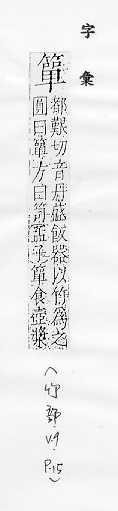 字彙
簞
都艱切音丹盛飯器以竹爲之
圓曰簞方曰笥孟子簞食壺漿
(竹部.V9.P.15)